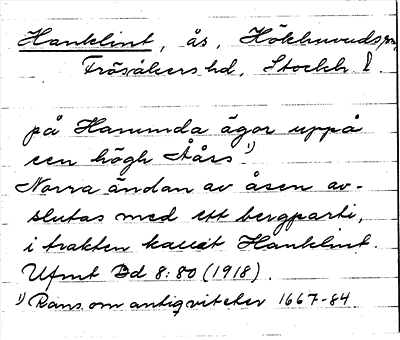 Hanklint, ås, Hökhuvuds sn,
Frösåkers hd, Stockh l.
på Harumda ägor uppå
een högh Åårs. 1)
Norra ändan av åsen av-
slutas med ett bergparti,
i trakten kallat Hanklint.
Ufmt Bd 8:80 (1918).
1) Rans. om antiqviteter 1667-84